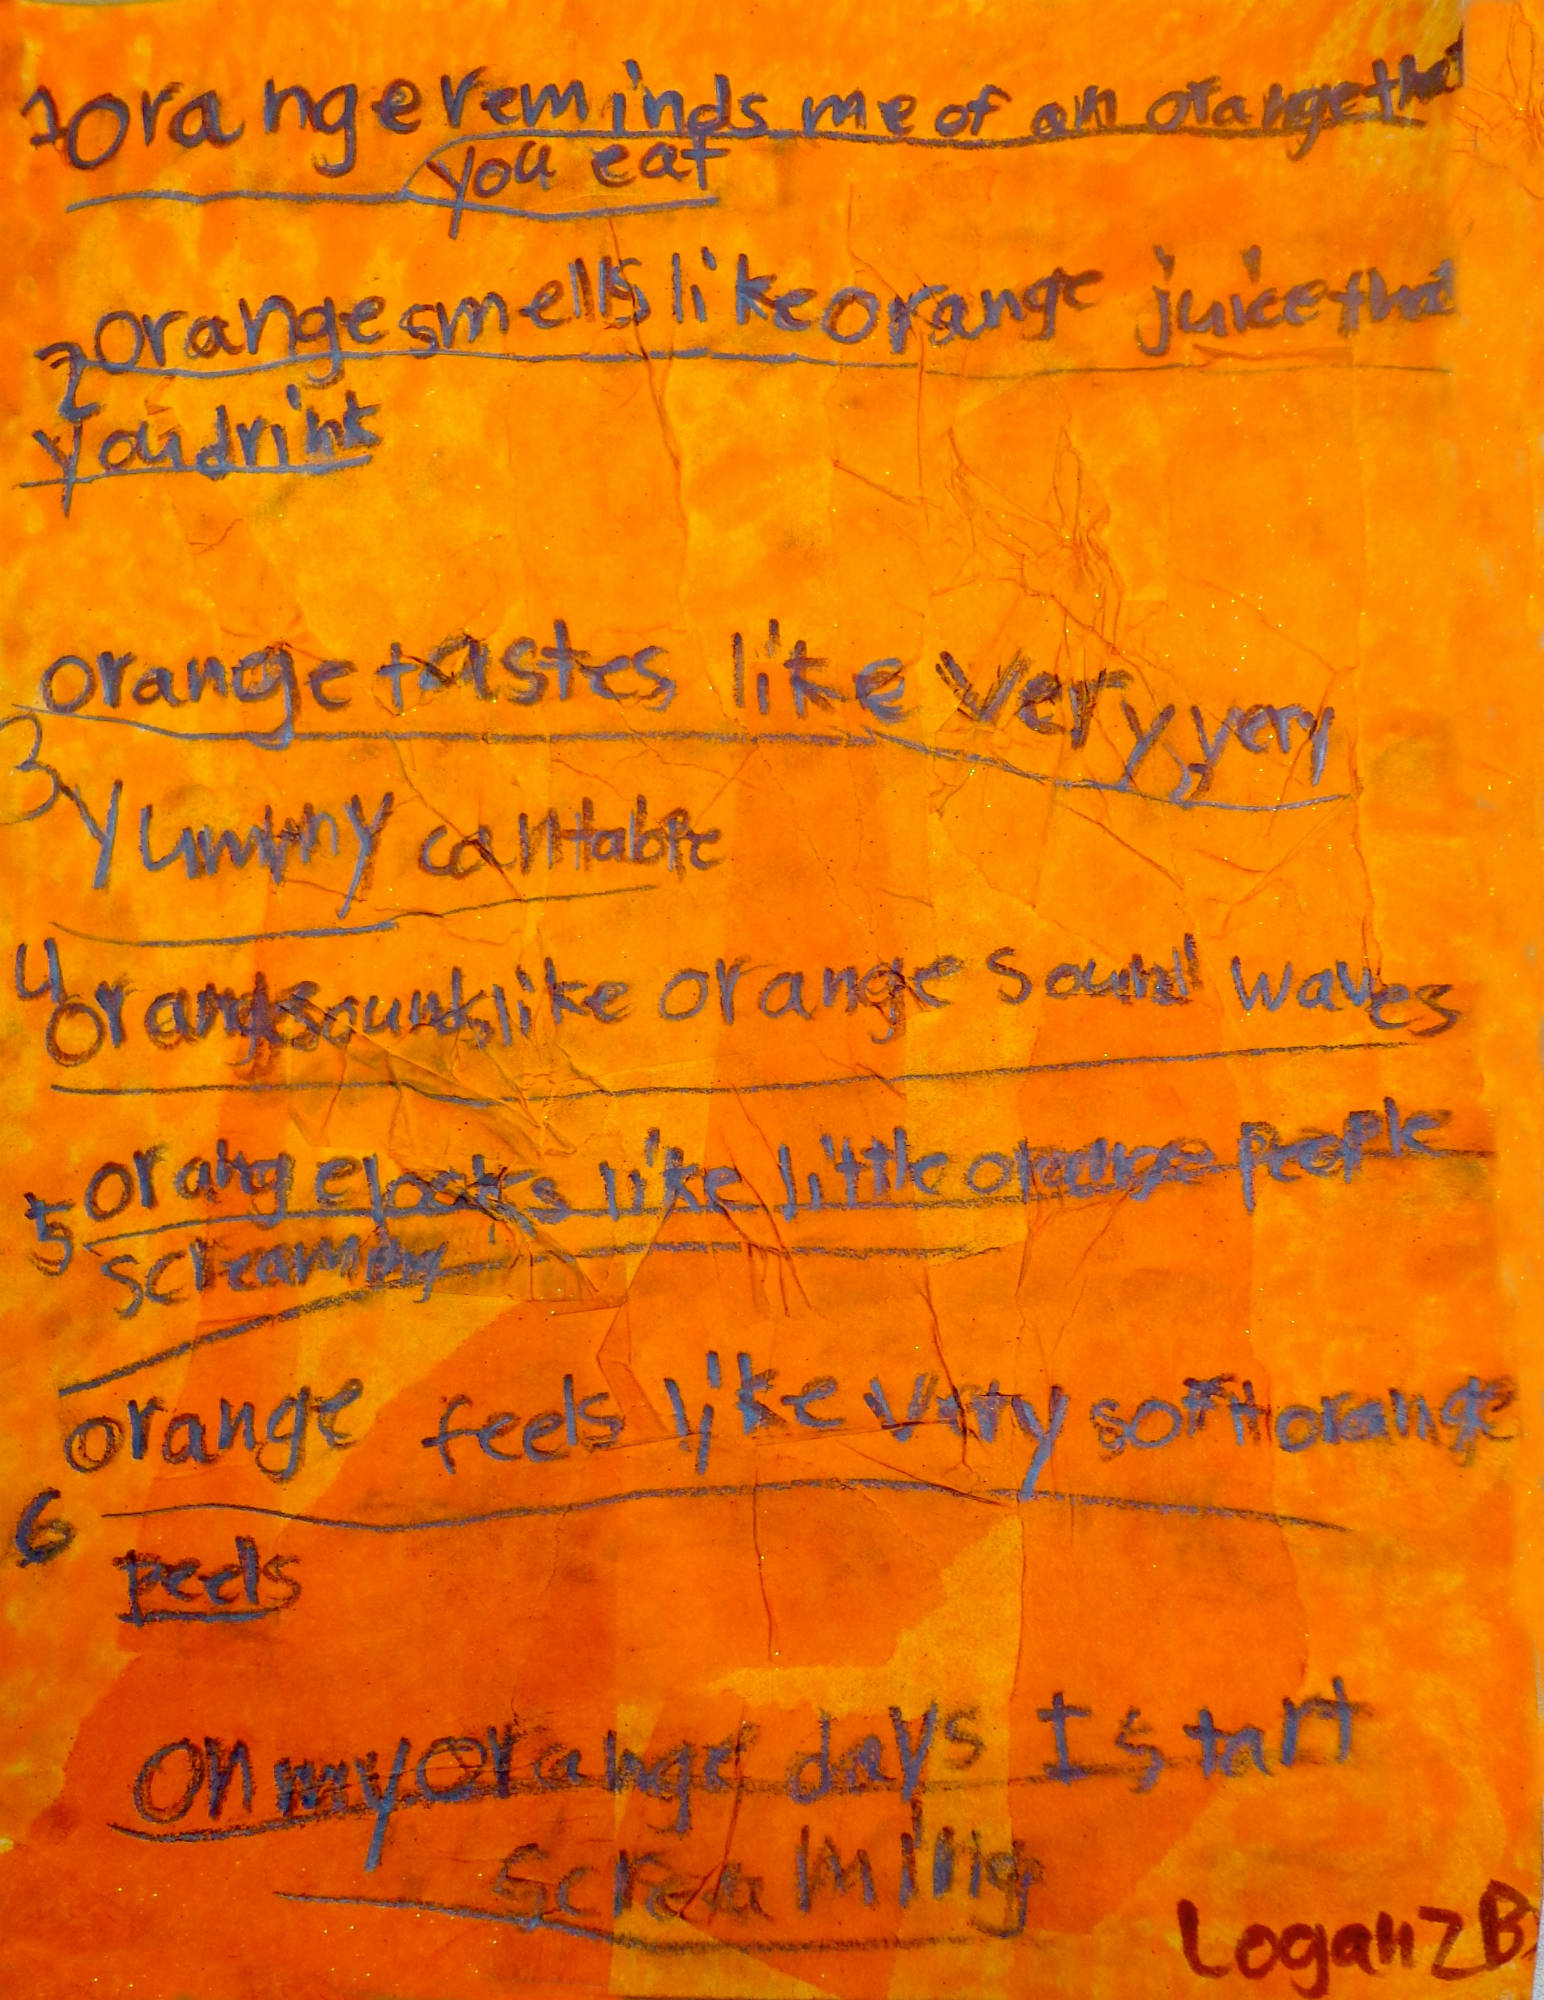 1 orange reminds me of an orange that
you eat
2 orange smells like orange juice that
you drink
orange tastes like very, very
3 yummy cantalope
4 orange sounds like orange sound waves
5 orange looks like little orange people
screaming
orange feels like very soft orange
6
peels
On my orange days I start
screaming
Logan ZB